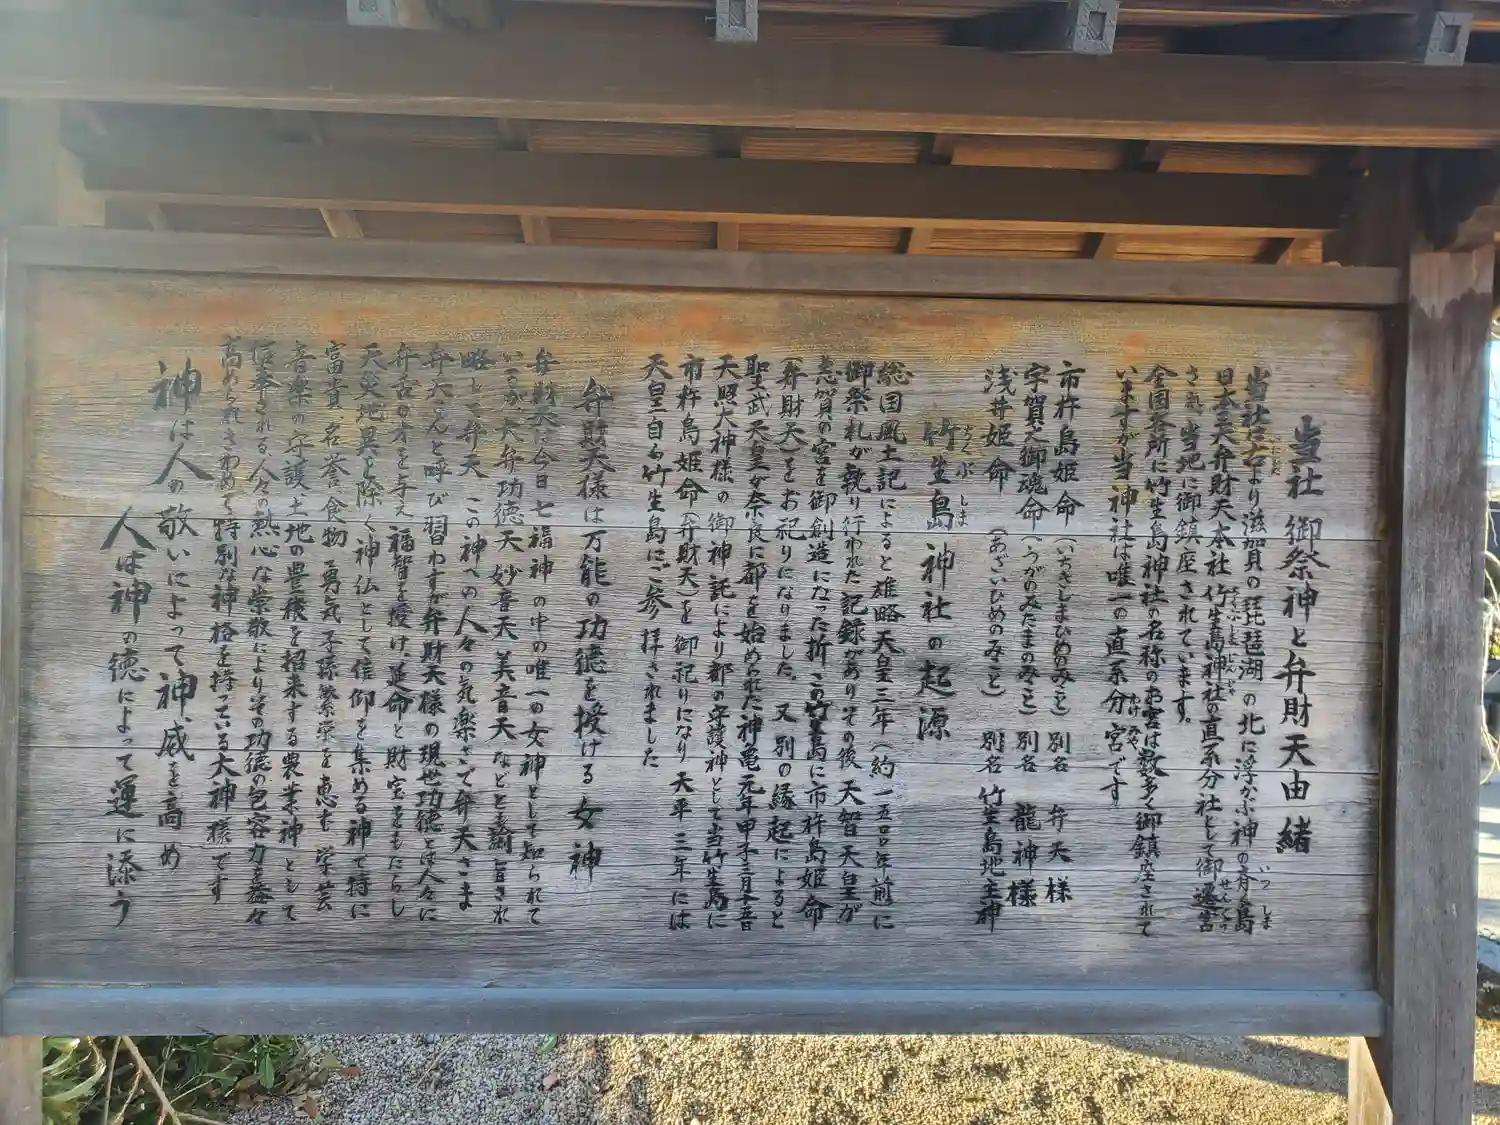 当社 御祭神と弁財天由緒
当社は古より滋賀の琵琶湖の北に浮かぶ神の斉島
日本三大弁財天本社竹生島神社の直系分社として御遷宮
され、当地に御鎮座されています。
全国各所に竹生島神社の名称のお宮は数多く御鎮座されて
いますが当神社は唯一の直系分宮です
市杵島姫命（いちきしまひめのみこと）別名 弁天様
宇賀之御魂命（うがのみたまのみこと）別名 龍神様
浅井姫命（あざいひめのみこと）別名 竹生島地主神
竹生島神社の起源
総国風土記によると雄略天皇三年（約一五〇〇年前）に
御祭礼が執り行われた記録がありその後天智天皇が
志賀の宮を御創造になった折この竹生島に市杵島姫命
（弁財天）をお祀りになりました。又別の縁起によると
聖武天皇が奈良に都を始められた神亀元年甲子三月十五日
天照大神様の御神託により都の守護神として当竹生島に
市杵島姫命（弁財天）を御祀りになり天平三年には
天皇自ら竹生島にご参拝されました
弁財天様は万能の功徳を授ける女神
弁財天は今日七福神の中の唯一の女神として知られて
いるが、大弁功徳天 妙音天 美音天などとも称され
略して弁天 この神への人々の気楽さで弁天さま
弁天さんと呼び習わすが弁財天様の現世功徳とは人々に
弁舌の才を与え 福智を授け、延命と財宝をもたらし
天災地異を除く神仏として信仰を集める神で特に
富貴、名誉、食物 勇気 子孫繁栄を恵む 学芸
音楽の守護 土地の豊穣を招来する農業神として
信奉される人々の熱心な崇敬によりその功徳の包容力を益々
高められきわめて特別な神格を持っている大神様です
神は人の敬いによって神威を高め
人は神の徳によって運に添う